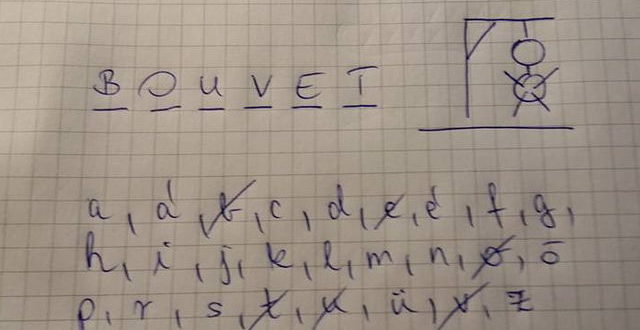 B O U V E T
a, á, b, c, d, e, é, f, g,
h, i, j, k, l, m, n, o, ō
p, r, s, t, u, ü, v, z